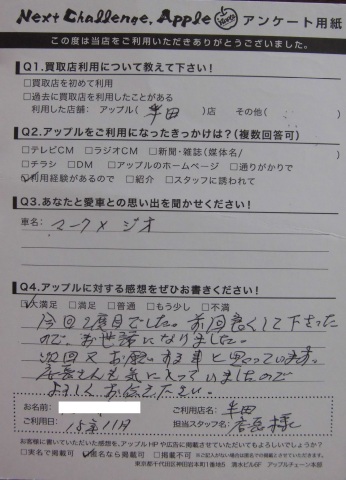 Next Challenge, Apple アンケート用紙
この度は当店をご利用いただきありがとうございました。
Q1.買取店利用について教えて下さい!
□買取店を初めて利用
□過去に買取店を利用したことがある
利用した店舗: アップル( 半田 )店 その他( )
Q2.アップルをご利用になったきっかけは?(複数回答可)
□テレビCM □ラジオCM □新聞・雑誌(媒体名/ )
□チラシ □DM □アップルのホームページ □通りがかりで
☑利用経験があるので □紹介 □スタッフに誘われて
Q3.あなたと愛車との思い出を聞かせください!
車名: マークX ジオ
Q4.アップルに対する感想をぜひお書きください!
☑大満足 □満足 □普通 □もう少し □不満
今回2度目でした。前回良くして下さった
ので、お世話になりました。
次回又お願いする車と思っています。
店長さんも気に入っていましたので
よろしくお伝え下さい。
お名前: ご利用店名: 半田
ご利用日: 15年11月 担当スタッフ名: 店長様
お客様に書いていただいた感想を、アップルHPや広告に掲載させていただいてもよろしいでしょうか?
□実名で掲載可 ☑匿名なら掲載可 □掲載不可 ※ご記入がない場合は匿名での掲載とさせていただきます。
東京都千代田区神田岩本町1番地5 清水ビル6F アップルチェーン本部